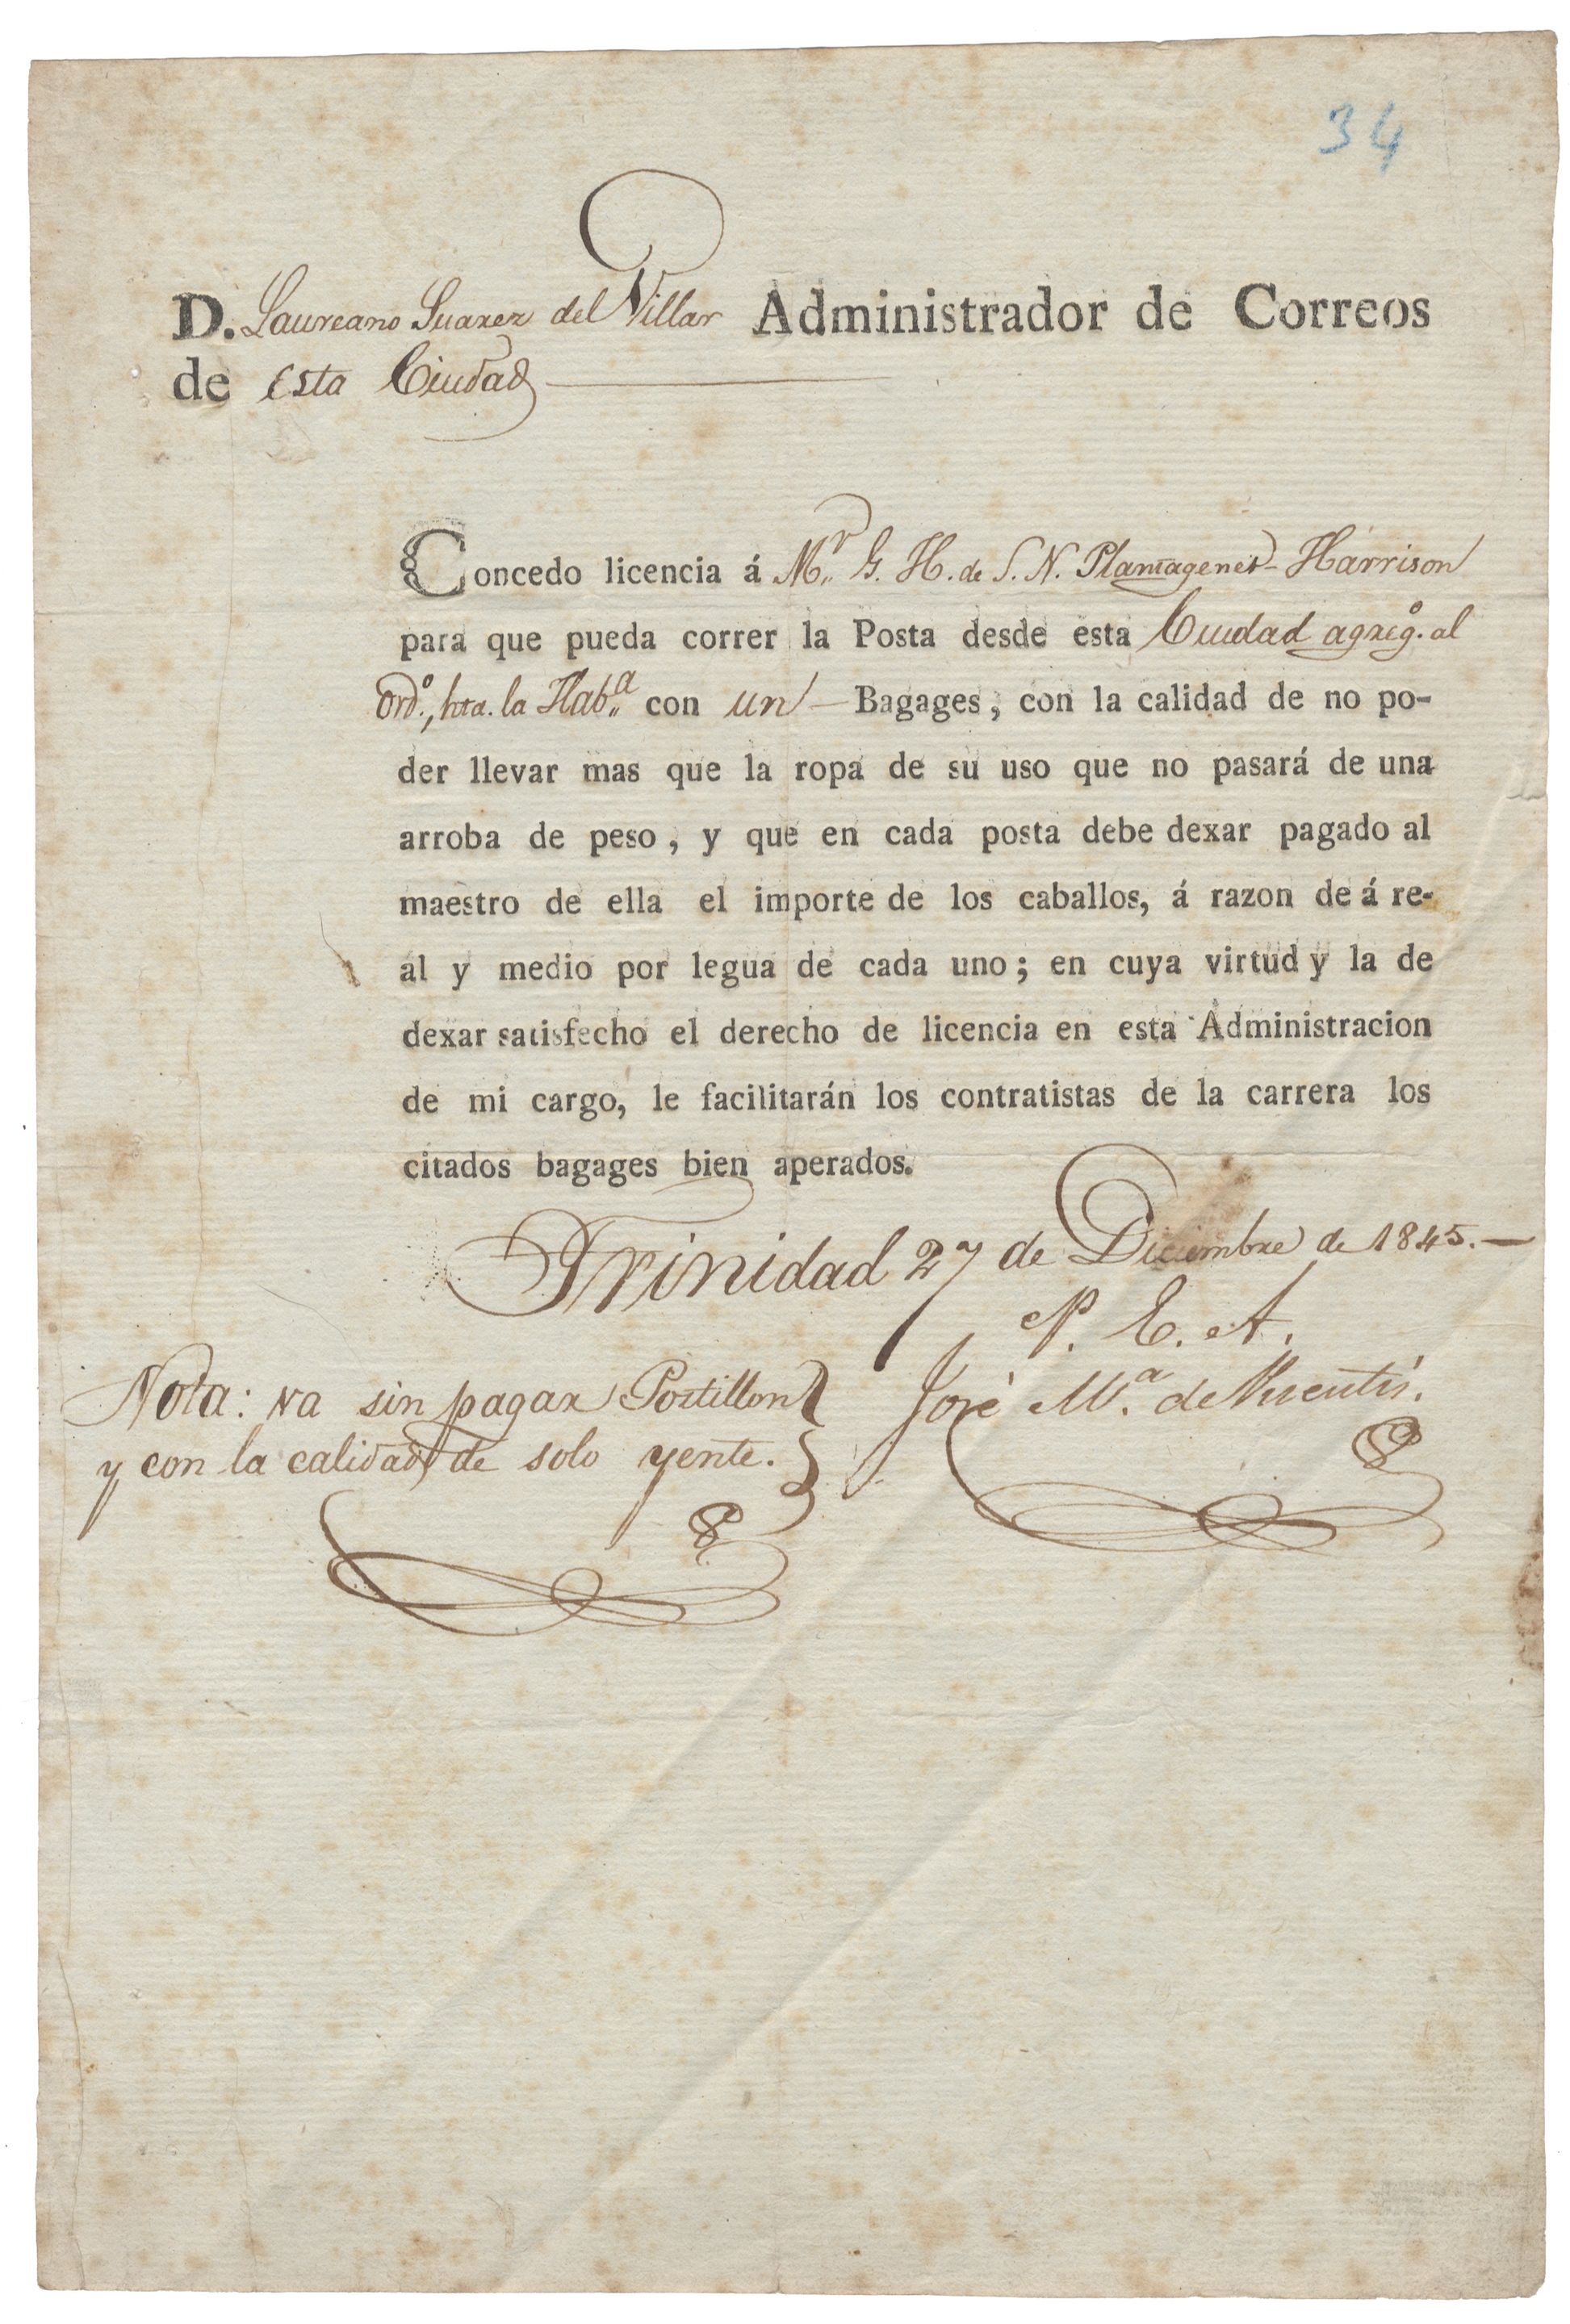 34
D. Laureano Suarez del Villar Administrador de Correos
de esta Ciudad
Concedo licencia á Mr. G. H. de S. N. Plantagenet-Harrison
para que pueda correr la Posta desde esta Ciudad agregº. al
Ordº., hta. la Habª. con un Bagages, con la calidad de no po-
der llevar mas que la ropa de su uso que no pasará de una
arroba de peso, y que en cada posta debe dexar pagado al
maestro de ella el importe de los caballos, á razon de á re-
al y medio por legua de cada uno; en cuya virtud y la de
dexar satisfecho el derecho de licencia en esta Administracion
de mi cargo, le facilitarán los contratistas de la carrera los
citados bagages bien aperados.
Trinidad 27 de Diciembre de 1845.—
P. E. A.
José Mª. de
Nota: va sin pagar Postillon
y con la calidad de solo yente.